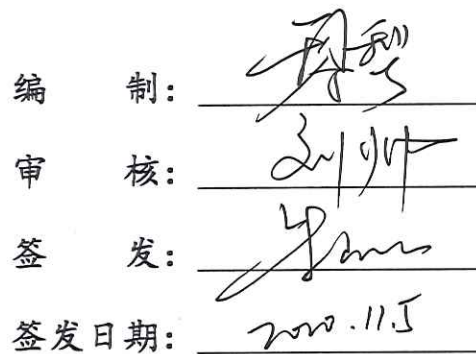 编 制：
审 核：刘帅
签 发：
签发日期：2020.11.5